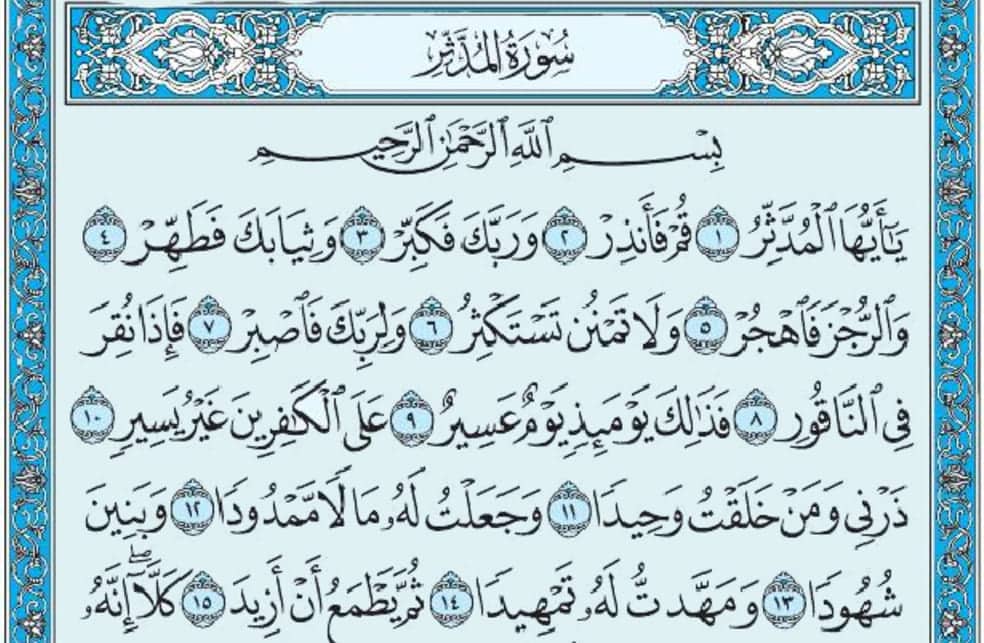 سُورَةُ المُدَّثِّر
بِسْمِ ٱللَّهِ ٱلرَّحْمَٰنِ ٱلرَّحِيمِ
يَٰٓأَيُّهَا ٱلْمُدَّثِّرُ ١ قُمْ فَأَنذِرْ ٢ وَرَبَّكَ فَكَبِّرْ ٣ وَثِيَابَكَ فَطَهِّرْ ٤
وَٱلرُّجْزَ فَٱهْجُرْ ٥ وَلَا تَمْنُن تَسْتَكْثِرُ ٦ وَلِرَبِّكَ فَٱصْبِرْ ٧ فَإِذَا نُقِرَ
فِى ٱلنَّاقُورِ ٨ فَذَٰلِكَ يَوْمَئِذٍ يَوْمٌ عَسِيرٌ ٩ عَلَى ٱلْكَٰفِرِينَ غَيْرُ يَسِيرٍ ١٠
ذَرْنِى وَمَنْ خَلَقْتُ وَحِيدًا ١١ وَجَعَلْتُ لَهُۥ مَالًا مَّمْدُودًا ١٢ وَبَنِينَ
شُهُودًا ١٣ وَمَهَّدتُّ لَهُۥ تَمْهِيدًا ١٤ ثُمَّ يَطْمَعُ أَنْ أَزِيدَ ١٥ كَلَّآ ۖ إِنَّهُۥ